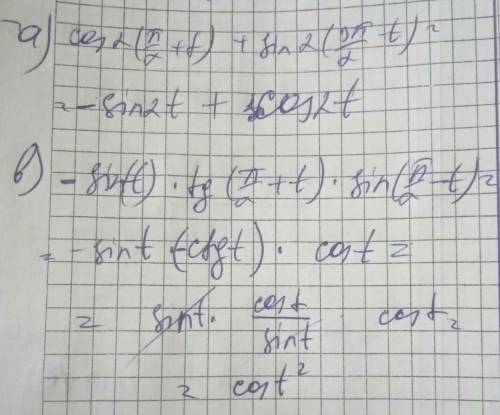 а) cos2(π/2+t) + sin2(3π/2-t)=
= -sin2t + cos2t
в) -sin(t) · tg(π/2+t) · sin(π/2-t)=
= -sint · (-ctgt) · cost =
= sint · cost/sint · cost =
= cost²